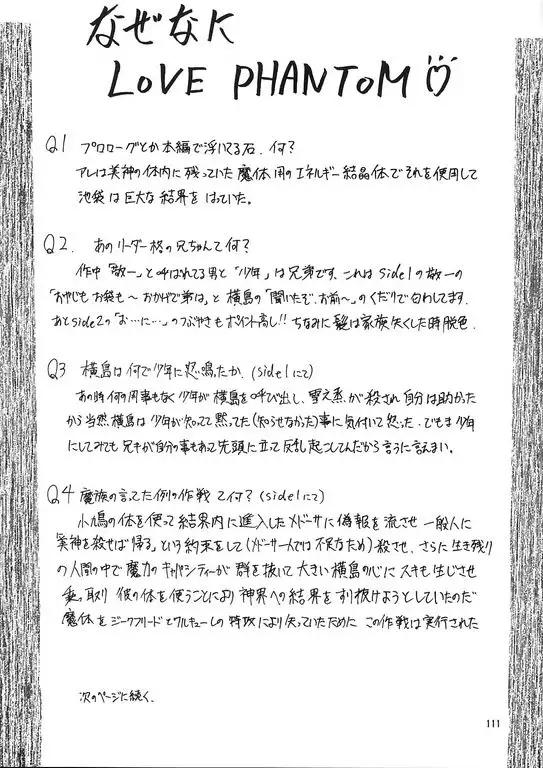 なぜなに
LOVE PHANTOM
Q1 プロローグとか本編で浮いてる石、何?
アレは美神の体内に残っていた魔体用のエネルギー結晶体でそれを使用して
池袋は巨大な結界をはっていた。
Q2. あのリーダー格の兄ちゃんて何?
作中「敬一」と呼ばれてる男と「少年」は兄弟です。これはside1の敬一の
「おやじもお袋も〜おかげで弟は」と横島の「聞いたぞ、お前〜」のくだりで匂わしてます。
あとside2の「お…に…」のつぶやきもポイント高し!!ちなみに髪は家族失くした時脱色。
Q3 横島は何で少年に怒鳴ったか。(side1にて)
あの時何の用事もなく少年が横島を呼び出し、雪之丞が殺され自分は助かった
から当然横島は少年が知ってて黙ってた(知らせなかった)事に気付いて怒った。でもま少年
にしてみても兄キが自分の事もあって先頭に立って反乱起こしてんだから言うに言えまい。
Q4 魔族の言ってた例の作戦て何?(side1にて)
小鳩の体を使って結界内に進入したメドーサに偽報を流させ一般人に
「美神を殺せば帰る」という約束をして(メドーサ一人では不足なため)殺させ、さらに生き残り
の人間の中で魔力のキャパシティーが群を抜いて大きい横島の心にスキも生じさせ
乗っ取り彼の体を使うことにより神界への結界をすり抜けようとしていたのだ
魔体をジークフリードとワルキューレの特攻により失っていたためにこの作戦は実行された
次のページに続く。
111